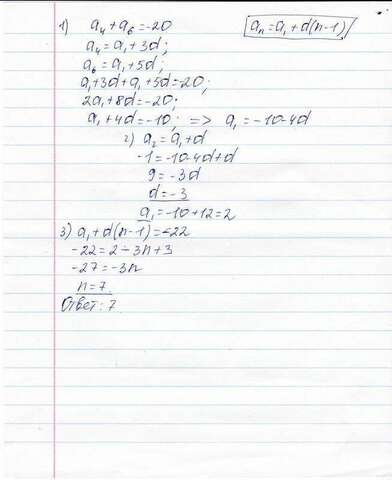 1) a₄ + a₆ = -20
aₙ = a₁ + d(n-1)
a₄ = a₁ + 3d;
a₆ = a₁ + 5d;
a₁ + 3d + a₁ + 5d = -20;
2a₁ + 8d = -20;
a₁ + 4d = -10; => a₁ = -10-4d
2) a₂ = a₁ + d
-1 = -10-4d+d
9 = -3d
d = -3
a₁ = -10+12 = 2
3) a₁ + d(n-1) = -22
-22 = 2 - 3n + 3
-27 = -3n
n = 7
Ответ: 7